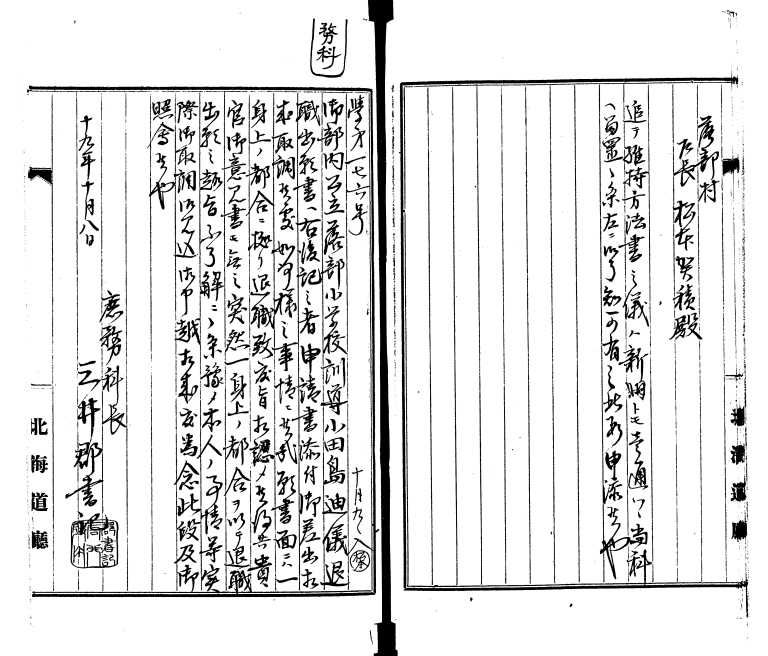 落部村
戸長 松本賀積殿
追テ維持方法書之儀ハ新旧トモ壱通ツヽ当科
ヘ留置候条左ニ御了知可有之此段申添候也
北海道庁
務科
学第一七六号
十月九日入
御部内公立落部小学校訓導小田島迪儀退
職出願書ヘ右後記之者申請書添付御差出相
成取調候処如何様之事情ニ候哉願書面ニハ一
身上ノ都合ニ拠リ退職致度旨相認メ候得共貴
官御意見書モ無之突然一身上ノ都合ヲ以テ退職
出願之趣旨不了解ニ候条篤ト本人ノ事情等実
際御取調御見込御申越相成度為念此段及御
照会候也
十九年十月八日
庶務科長
三井郡書記
北海道廳